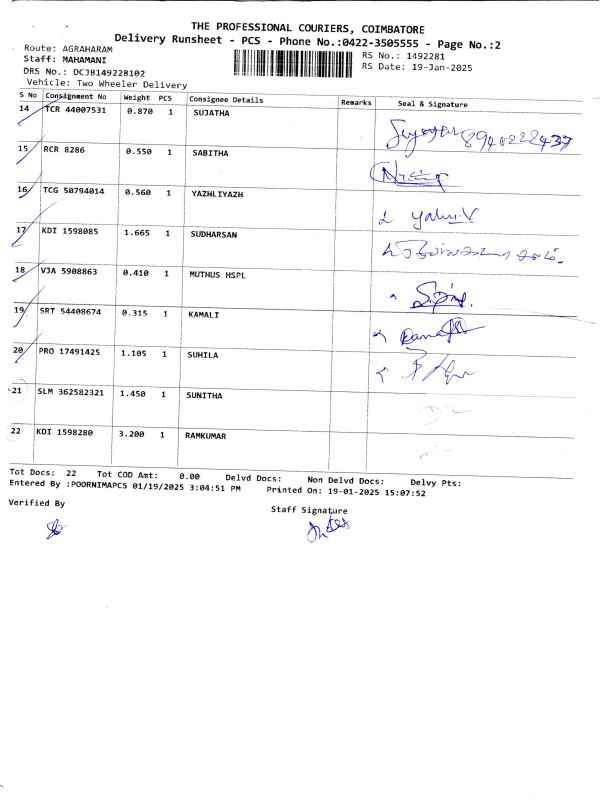 THE PROFESSIONAL COURIERS, COIMBATORE
Delivery Runsheet - PCS - Phone No.:0422-3505555 - Page No.:2
Route: AGRAHARAM
RS No.: 1492281
Staff: MAHAMANI
RS Date: 19-Jan-2025
DRS No.: DCJB149228102
Vehicle: Two Wheeler Delivery
S No Consignment No Weight PCS Consignee Details Remarks Seal & Signature
14 TCR 44007531 0.870 1 SUJATHA 8940222437
15 RCR 8286 0.550 1 SABITHA
16 TCG 50794014 0.560 1 YAZHLIYAZH
17 KDI 1598085 1.665 1 SUDHARSAN
18 VJA 5908863 0.410 1 MUTHUS HSPL
19 SRT 54408674 0.315 1 KAMALI
20 PRO 17491425 1.105 1 SUHILA
21 SLM 362582321 1.450 1 SUNITHA
22 KDI 1598280 3.200 1 RAMKUMAR
Tot Docs: 22 Tot COD Amt: 0.00 Delvd Docs: Non Delvd Docs: Delvy Pts:
Entered By :POORNIMAPCS 01/19/2025 3:04:51 PM Printed On: 19-01-2025 15:07:52
Verified By
Staff Signature